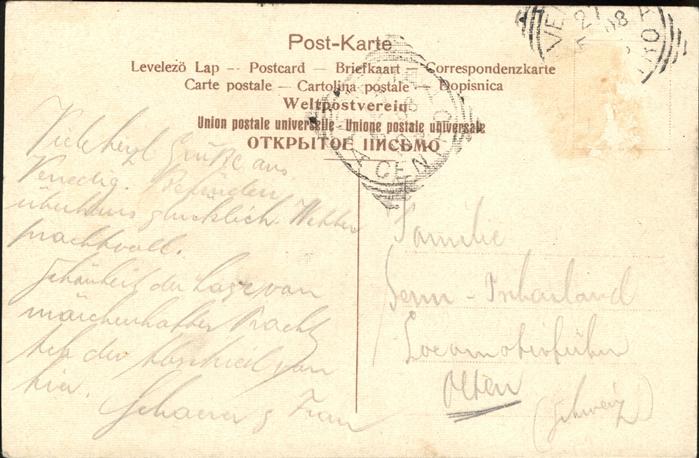 Post-Karte
Levelező Lap — Postcard — Briefkaart — Correspondenzkarte
Carte postale — Cartolina postale — Dopisnica
Weltpostverein
Union postale universelle - Unione postale universale
ОТКРЫТОЕ ПИСЬМО
Viele herzl. Grüße aus
Venedig. Befinden
überaus glücklich. Wetter
prachtvoll.
Schönheit der Lage von
märchenhafter Pracht
der Abschied von
hier.
Frau
Familie
Senn-
Locomotivführer
Olten
(Schweiz)
VE
27
08
CENT